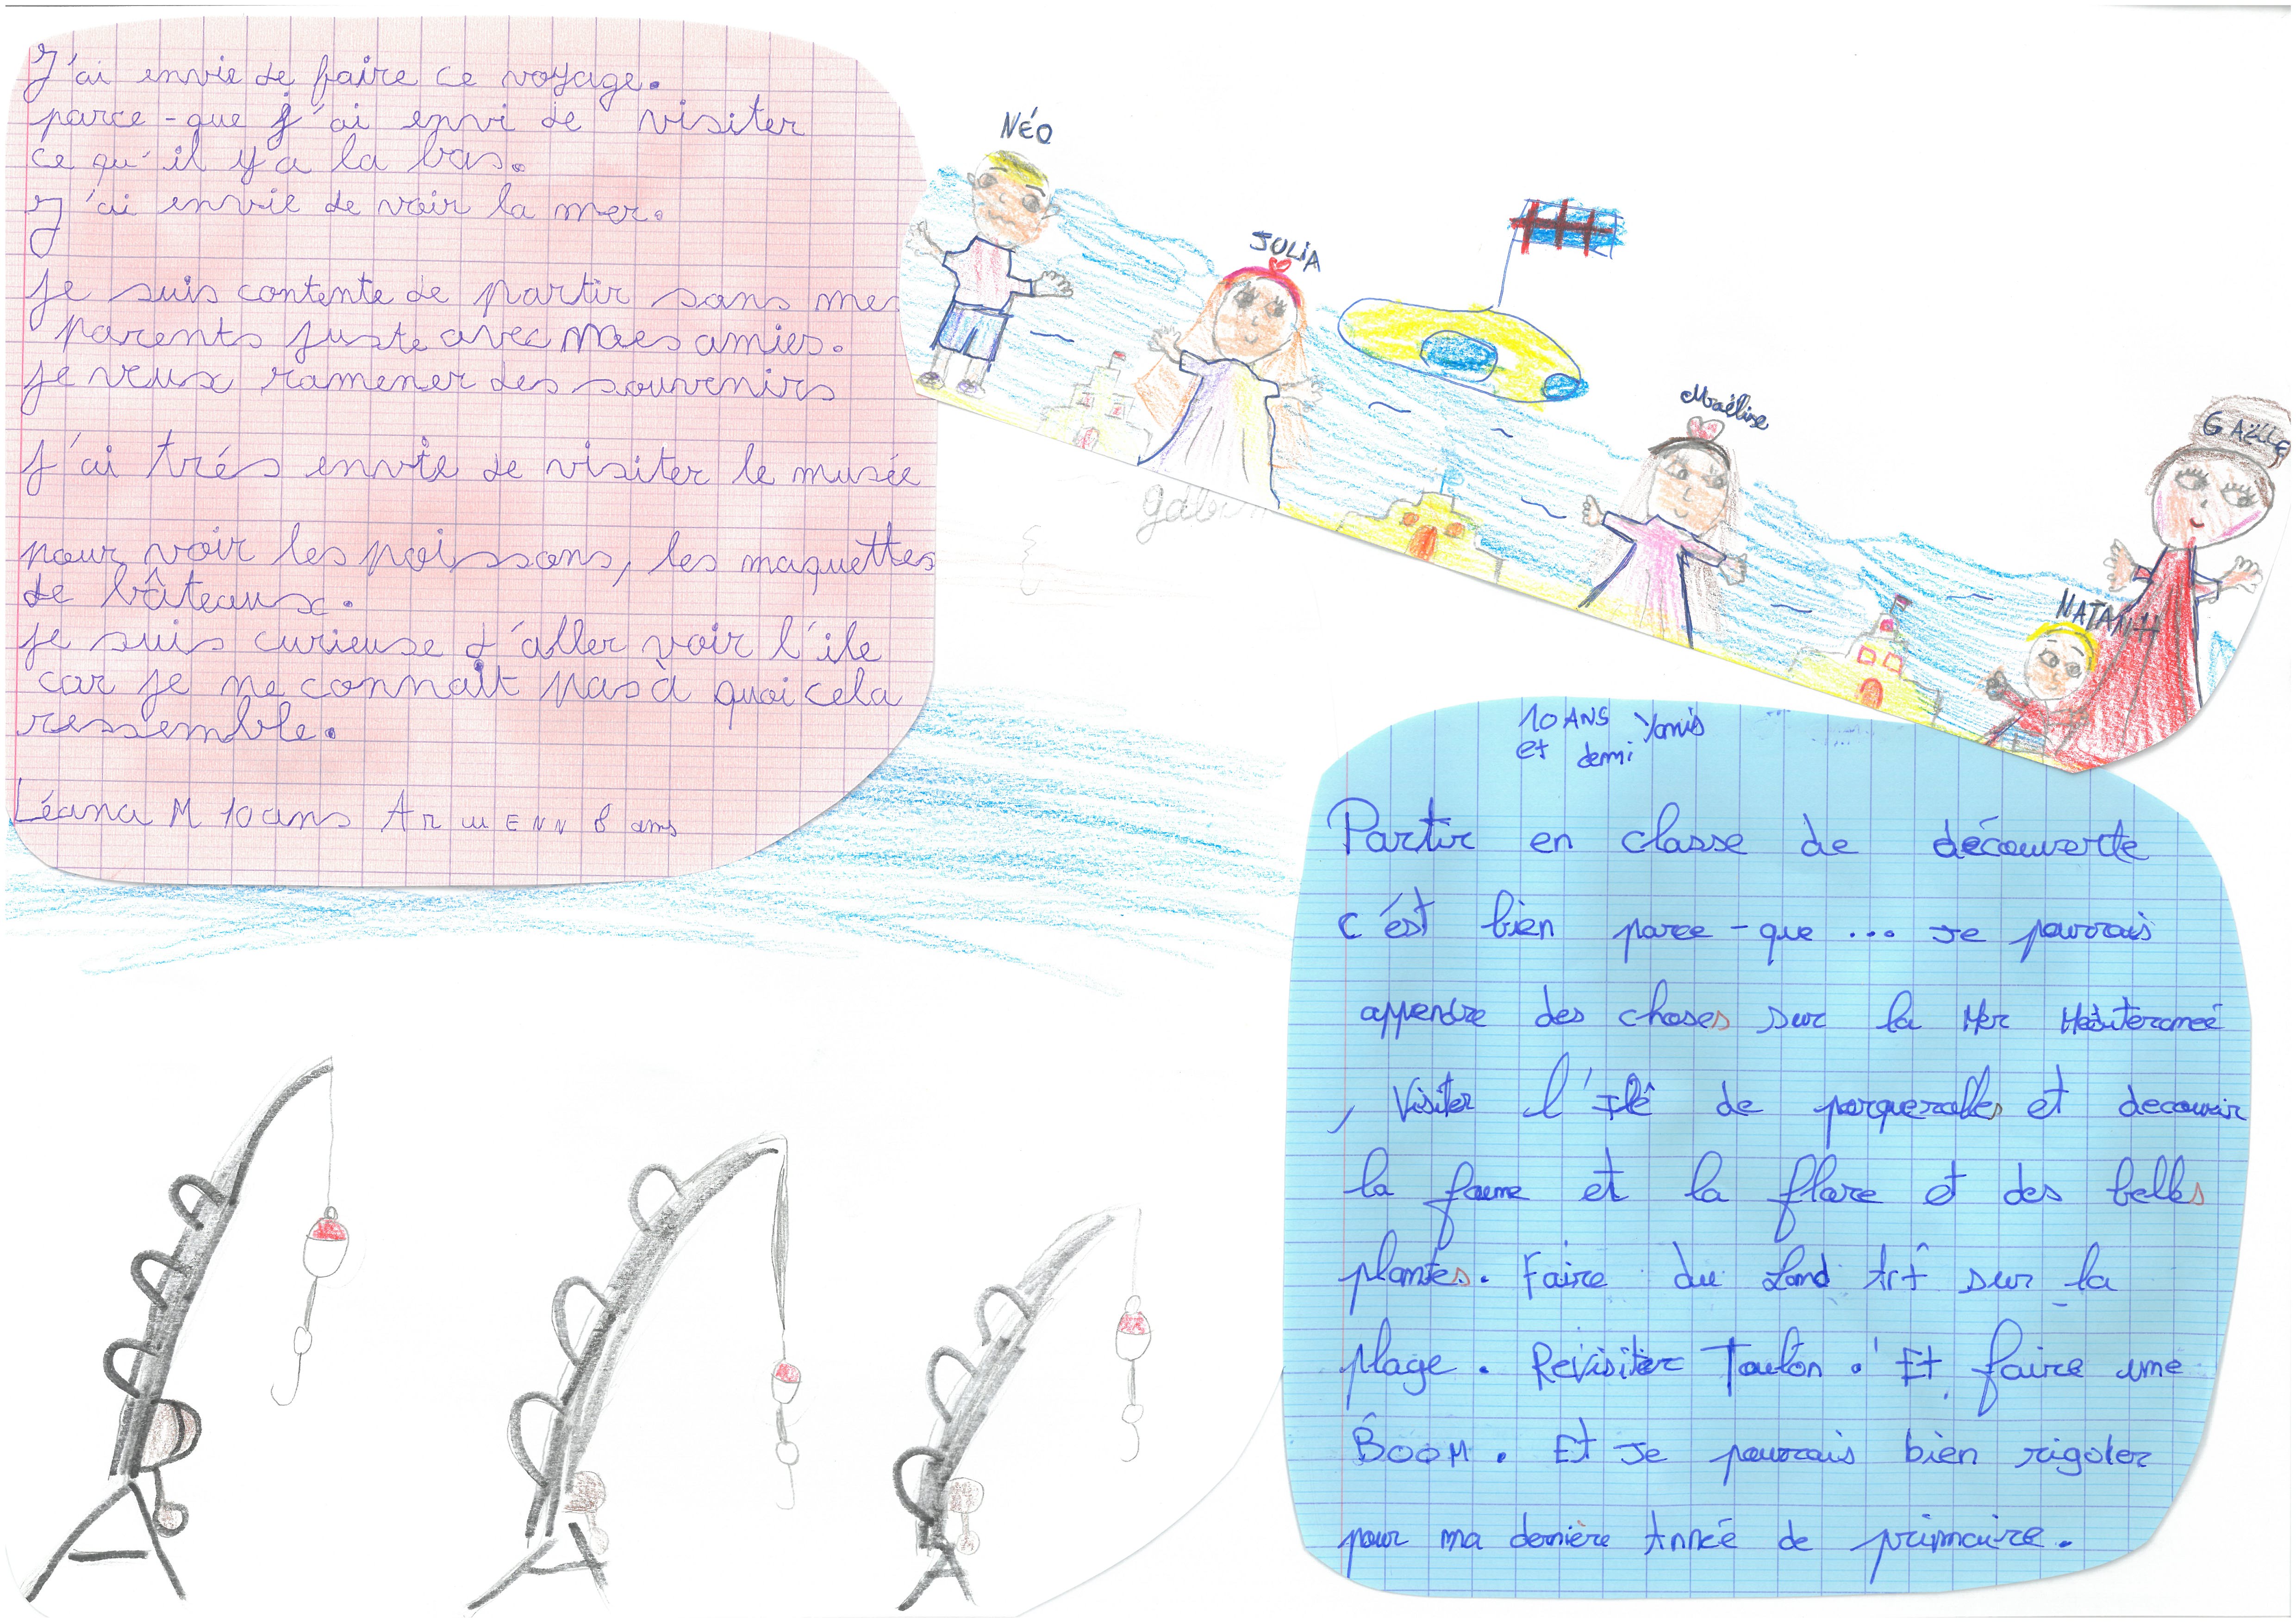 J'ai envie de faire ce voyage.
parce-que j'ai envi de visiter
ce qu'il y a la bas.
J'ai envie de voir la mer.
je suis contente de partir sans mes
parents juste avec mes amies.
je veux ramener des souvenirs
J'ai trés envie de visiter le musée
pour voir les poissons, les maquettes
de bâteaux.
je suis curieuse d'aller voir l'ile
car je ne connaît pas à quoi cela
ressemble.
Léana M 10 ans Arwenn 8 ans
NÉO
JULIA
Maëlise
GAëlle
NATANH
gabin
10 ANS Yanis
et demi
Partir en classe de découverte
c'ést bien parce-que ... Je pourrais
apprendre des choses sur la Mer Mediteraneé
, Visiter l'Ilê de porquerolles et decouvir
la faune et la flore et des belles
plantes. Faire du Land Art sur la
plage. Révisiter Toulon. Et faire une
BOOM. Et Je pourrais bien rigoler
pour ma dernière Année de primaire.